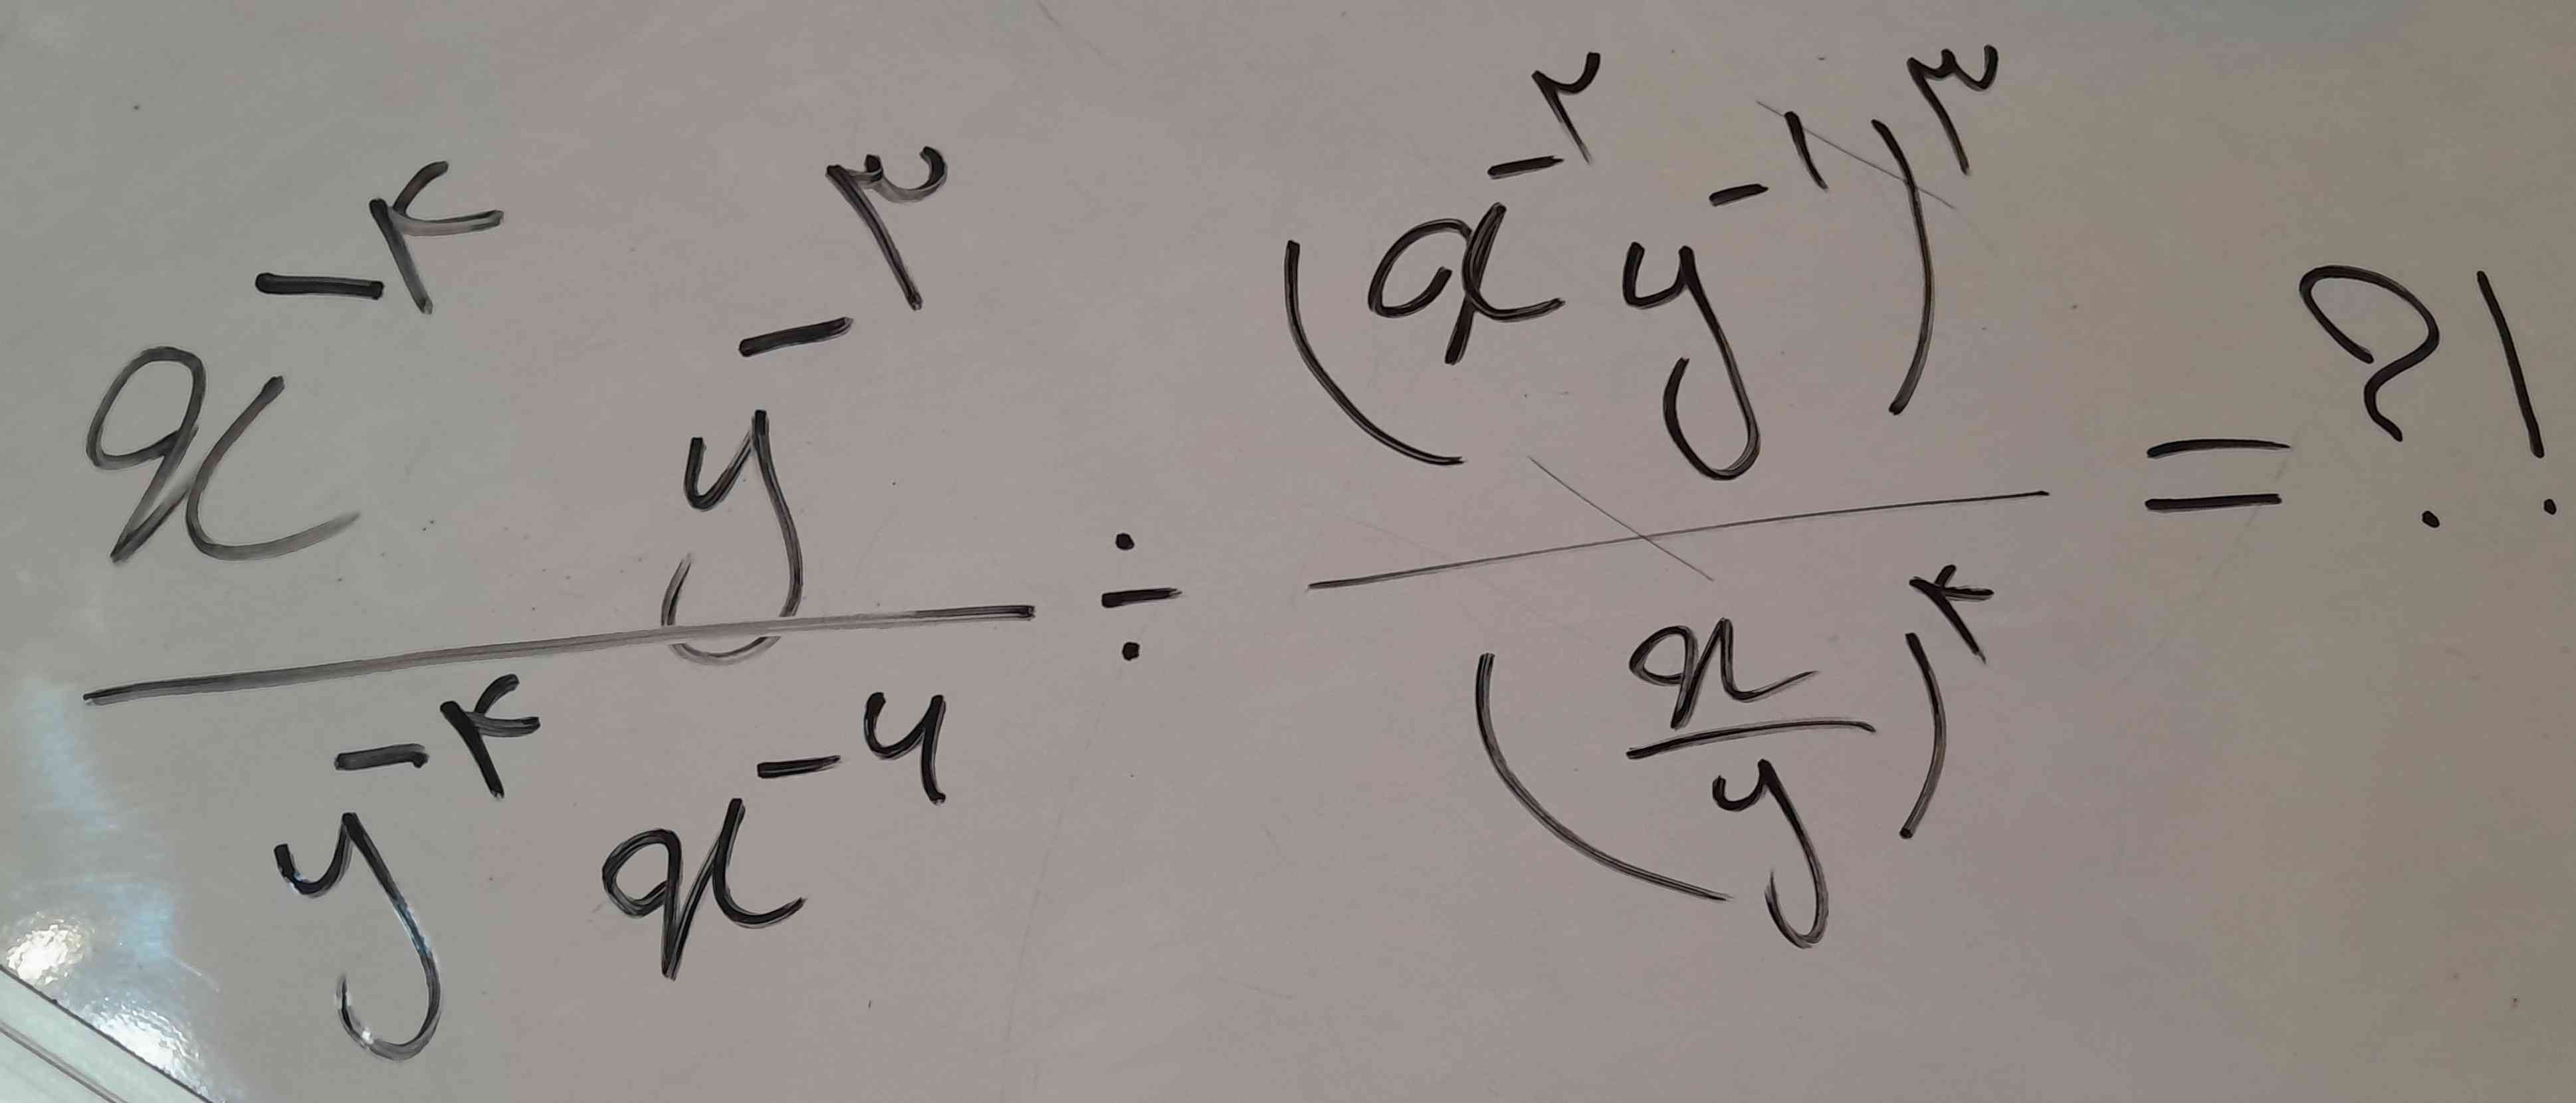 x^-۴ y^-۳ / y^-۴ x^-۶ ÷ (x^-۲ y^-۱)^۳ / (x/y)^۴ = ?!